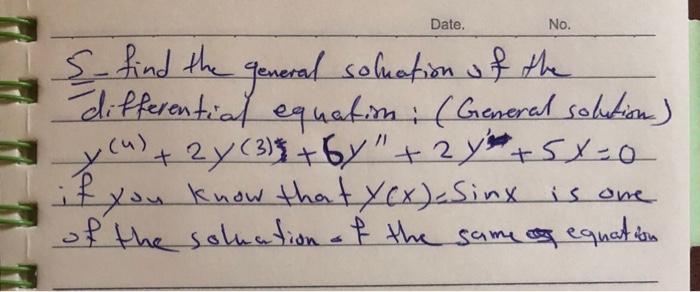 Date. No.
5- find the general soluation of the
differential equation: (General solution)
y(4) + 2y(3) + 6y'' + 2y' + 5y=0
if you know that y(x)=Sinx is one
of the soluation of the same equation